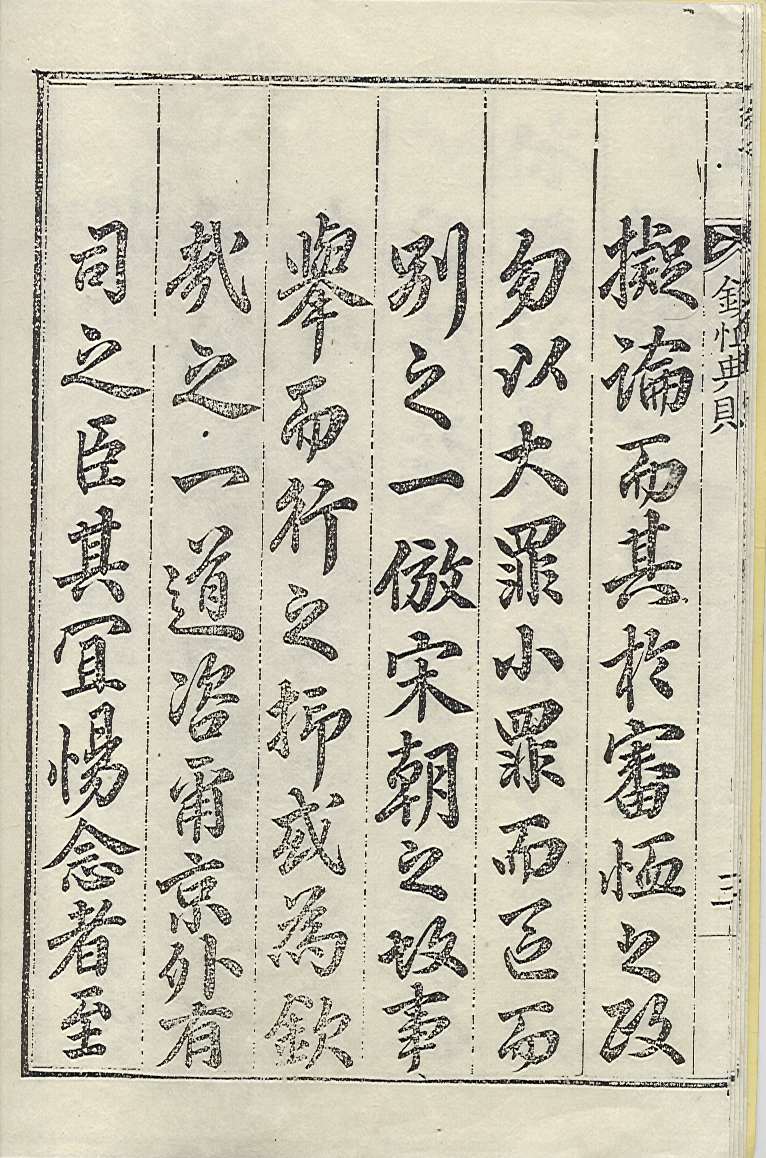 欽恤典
擬論而其於審恤之政
勿以大罪小罪而區而
別之一倣宋朝之故事
舉而行之抑或為欽
哉之一道咨爾京外有
司之臣其宜惕念者至